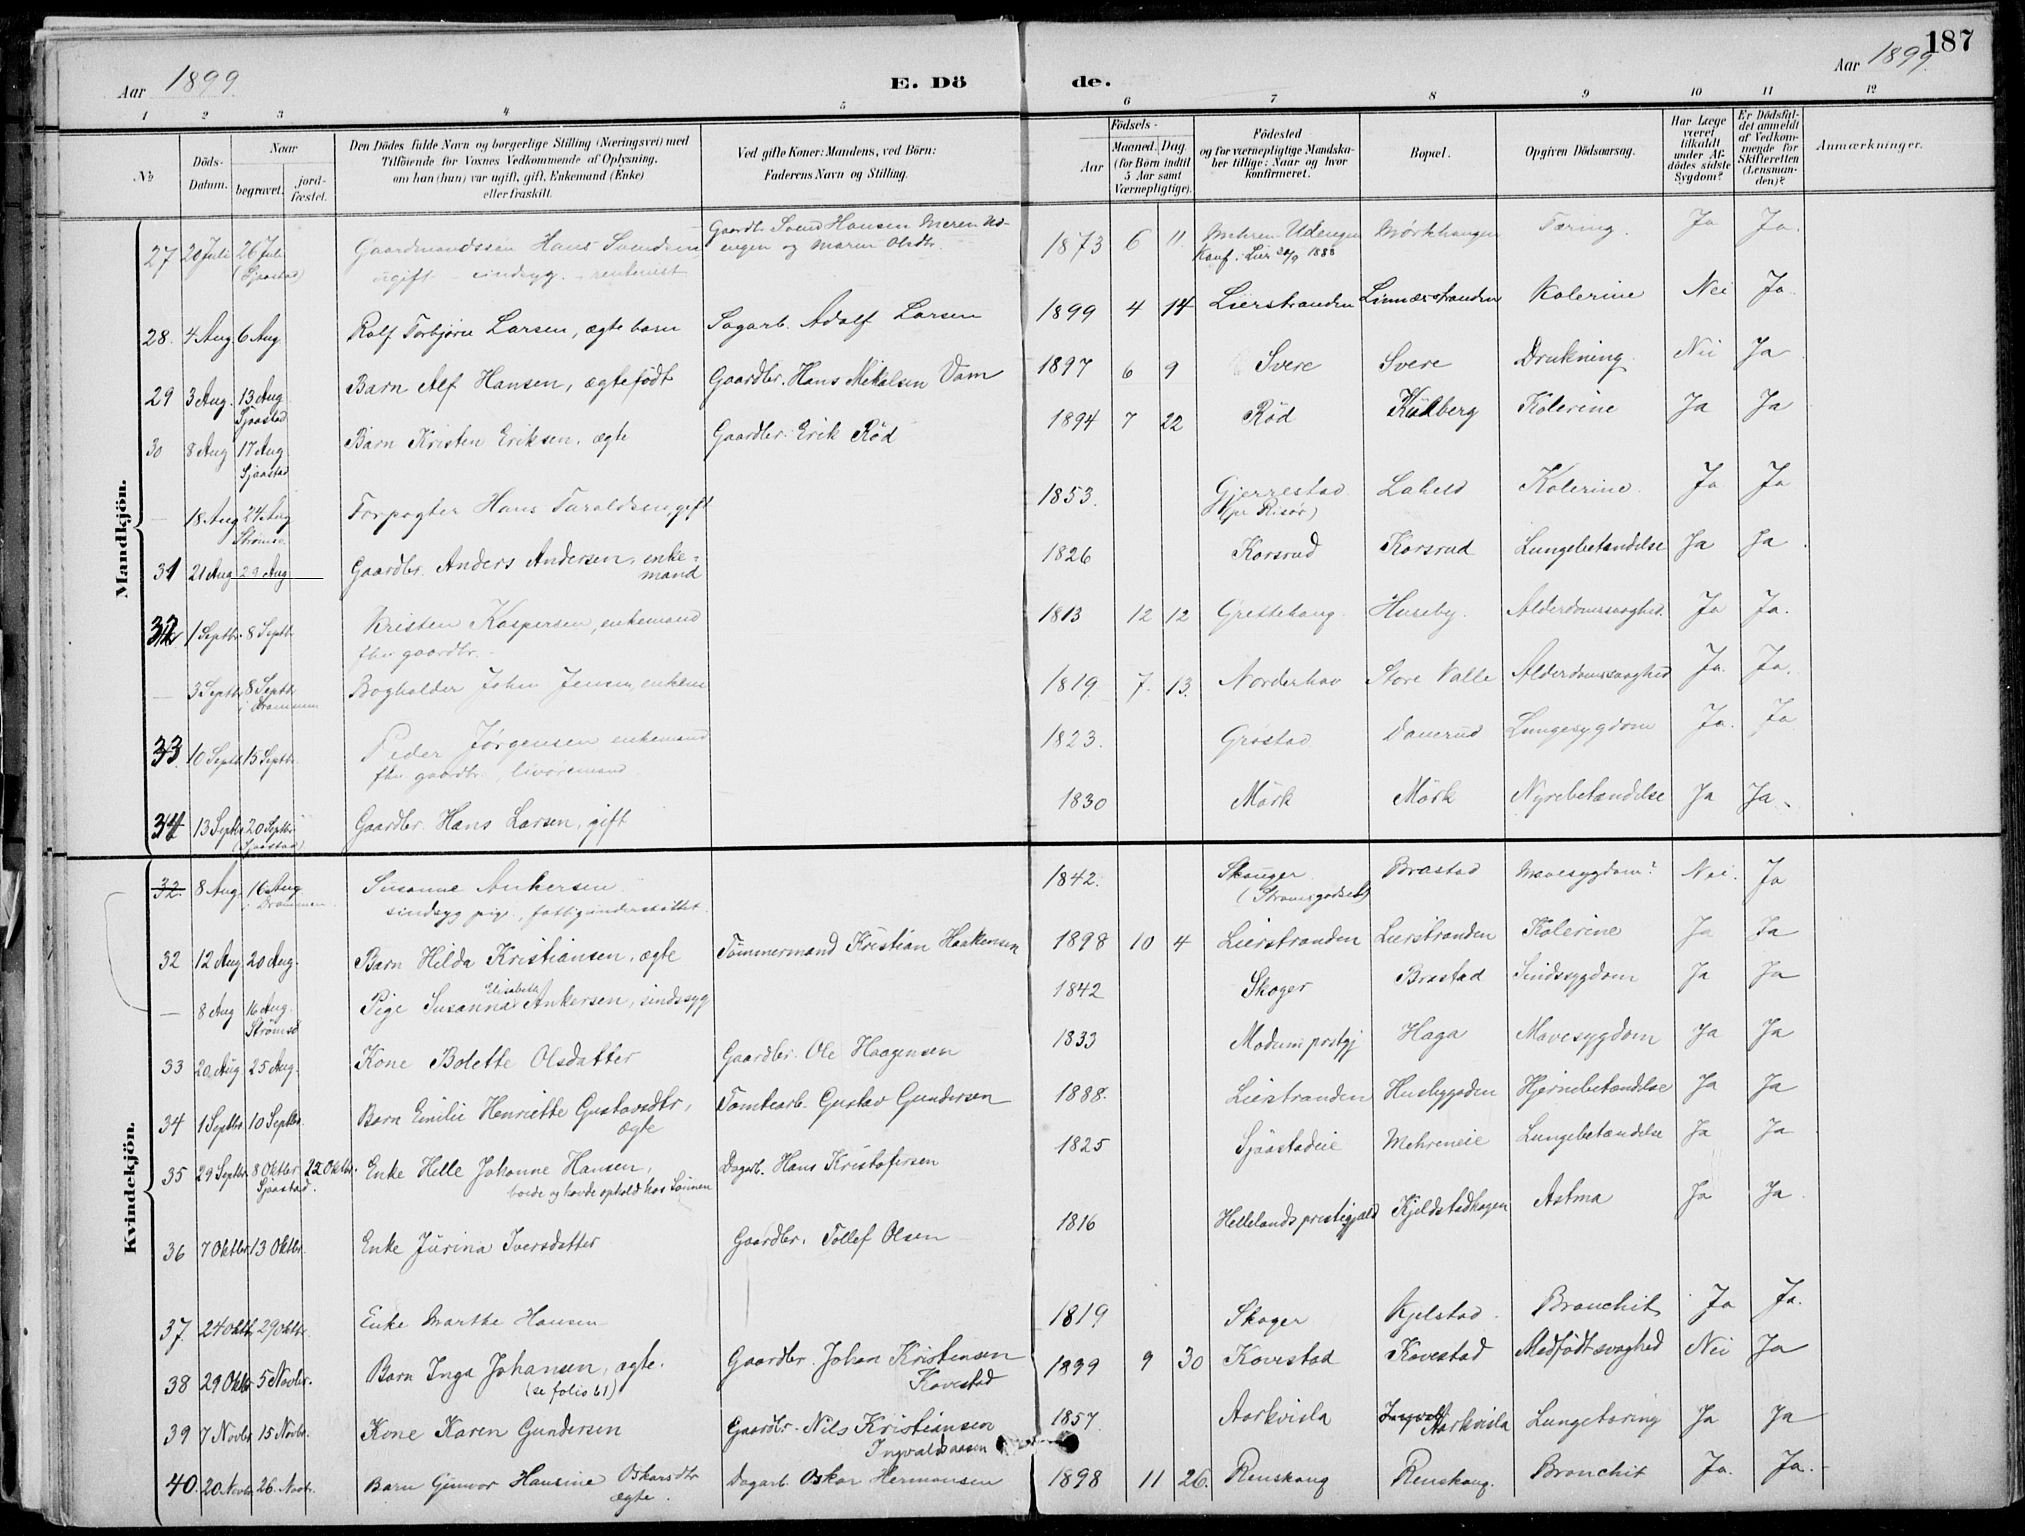 187
Aar 1899
E. Döde.
Aar 1899
1 2 3 4 5 6 7 8 9 10 11 12
No
Döds-Datum.
Naar begravet. jordfæstet.
Den Dödes fulde Navn og borgerlige Stilling (Næringsvei) med
Tilföiende for Voxnes Vedkommende af Oplysning,
om han (hun) var ugift, gift, Enkemand (Enke)
eller fraskilt.
Ved gifte Koner: Mandens, ved Börn:
Faderens Navn og Stilling.
Födsels-
Aar Maaned. Dag.
(for Börn indtil 5 Aar samt Værnepligtige).
Födested
og for værnepligtige Mandskaber tillige: Naar og hvor konfirmeret.
Bopæl.
Opgiven Dödsaarsag.
Har Læge været tilkaldt under Afdödes sidste Sygdom?
Er Dödsfaldet anmeldt af Vedkommende for Skifteretten (Lensmanden)?
Anmærkninger.
Mandkjön.
27 20 Juli 26 Juli (Sjaastad) Gaardmandssøn Hans Svendsen ugift - sindsyg - Gaardbr. Svend Hansen og Maren Olsdtr. 1873 6 11 Mehren Udengen Konf. i Lier 30/9 1888 Mørkhaugen Tæring. Ja Ja.
28. 4 Aug. 6 Aug. Rolf Torbjørn Larsen, ægte barn Sagarb. Adolf Larsen 1899 4 14 Lierstranden Linnæsstranden Kolerine Nei Ja
29 3 Aug. 13 Aug Sjaastad Barn Alf Hansen, ægtefødt Gaardbr. Hans Mikalsen Dam 1897 6 9 Svere Svere Drukning. Nei Ja
30 8 Aug 17 Aug Sjaastad Barn Kristen Eriksen, ægte Gaardbr. Erik Röd 1894 7 22 Röd Kulberg Kolerine Ja Ja
— 18 Aug 24 Aug Strömsö Forpagter Hans Taraldsen, gift 1853. Gjerrestad (pr Risør) Laheld Kolerine. Ja Ja
31 21 Aug 29 Aug Gaardbr. Anders Andersen, enkemand 1826 Korsrud Korsrud Lungebetændelse Ja Ja
32 1 Septbr. 8 Septb. Kristen Kaspersen, enkemand fhv gaardbr. 1813 12 12 Grettehaug Huseby. Alderdomssvaghed. Ja Ja.
— 3 Septbr 8 Septbr i Drammen Bogholder John Jensen, enkem 1819. 7. 13. Norderhov Store Valle Alderdomssvaghed Ja. Ja.
33 10 Septb 15 Septbr. Peder Jørgensen enkemand fhv gaardbr., livøremand 1823. Grøstad Damerud Lungesygdom Ja. Ja
34 13 Septbr 20 Septbr (Sjaastad) Gaardbr. Hans Larsen, gift 1830 Mörk Mörk Nyrebetændelse Ja Ja
Kvindekjön.
32. 8 Aug. 16 Aug i Drammen. Susanne Ankersen sindsyg pige, fattigunderstøttet. 1842. Skouger (Strømsgodset) Brastad Mavesygdom? Nei. Ja
32 12 Aug 20 Aug. Barn Hilda Kristiansen, ægte Tömmermand Kristian Haakensen 1898 10 4 Lierstranden Lierstranden Kolerine Ja Ja
— 8 Aug 16 Aug. Strömsö Pige Susanna Elisabeth Ankersen, sindssyg 1842 Skoger Brastad Sindssygdom Ja Ja
33 20 Aug 25 Aug. Kone Bolette Olsdatter Gaardbr. Ole Haagensen 1833 Modum prstgj Haga Mavesygdom Ja Ja
34 1 Septbr. 10 Septbr. Barn Emilie Henriette Gustavsdtr, ægte Tomtearb. Gustav Gundersen 1888. Lierstranden Husbygoden Hjernebetændelse Ja Ja
35 29 Septbr. 8 Oktbr Sjaastad. 22 Oktbr. Enke Helle Johanne Hansen, boede og havde ophold hos Sønnen Dagarb. Hans Kristofersen 1825 Sjaastadeie Mehreneie Lungebetændelse Ja Ja
36 7 Oktbr. 13 Oktbr. Enke Jürina Iversdatter Gaardbr. Tollef Olsen 1816 Hellelands prestegjæld Kjeldstadhagen Astma Ja Ja
37. 24 Oktb. 29 Oktbr. Enke Marthe Hansen 1819 Skoger Kjelstad Bronchit Ja Ja.
38 29 Oktbr 5 Novbr. Barn Inga Johansen, ægte. (se folio 61) Gaardbr. Johan Kristensen Kovestad 1899 9 30 Kovestad Kovestad Medfödt svaghed Nei Ja
39 7 Novbr. 15 Novbr. Kone Karen Gundersen Gaardbr. Nils Kristiansen Ingvaldsaasen 1857 Aarkvisla Aarkvisla Lungetæring Ja Ja
40. 20 Novbr 26. Novb. Barn Gunvor Hansine Oskarsdtr ægte. Dagarb. Oskar Hermansen 1898 11 26. Renskaug Renskaug. Bronchit Ja. Ja.